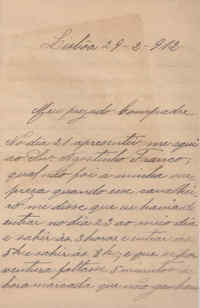 Lisboa 29-2-912
Meu prezado Compadre
No dia 21 apresentei me aqui
ao Snr. Agostinho Franco,
qual não foi a minha sur
preza quando esse cavalhei
ro me disse que eu havia de
entrar no dia 23 ao meio dia
e sahir ás 3 horas e entrar ás
5 h e sahir ás 8 h, e que se por
ventura faltasse 5 minutos á
hora marcada que não ganhava